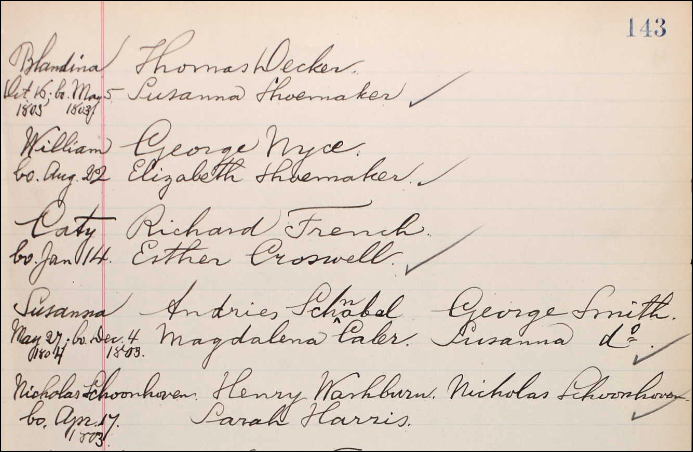 143
Blandina Thomas Decker.
Oct. 16; bo. May 5 Susanna Shoemaker
1803. 1803.
William George Nyce.
bo. Aug. 22 Elizabeth Shoemaker.
Caty Richard French.
bo. Jan 14. Esther Croswell.
Susanna Andries Schnabel George Smith.
May 27; bo. Dec. 4 Magdalena Caler. Susanna do.
1804 1803.
Nicholas Schoonhoven. Henry Washburn. Nicholas Schoonhoven.
bo. Apr. 17. Sarah Harris.
1803.